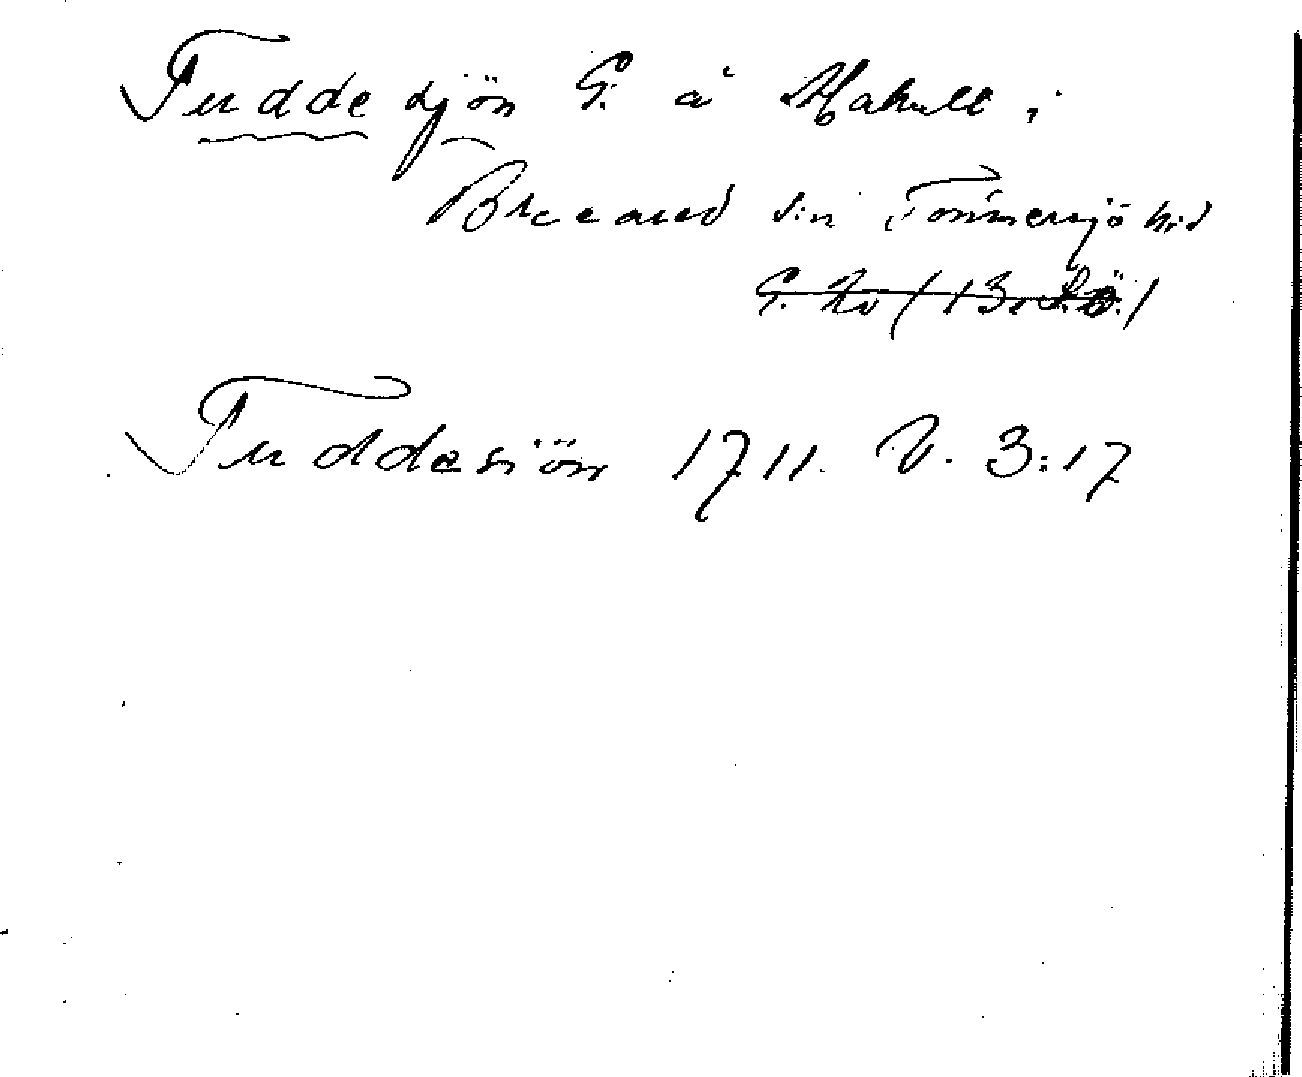 Tuddesjön G. å Mahult i
Breared s:n Tönnersjö hrd
Tuddesiön 1711. V. 3:17